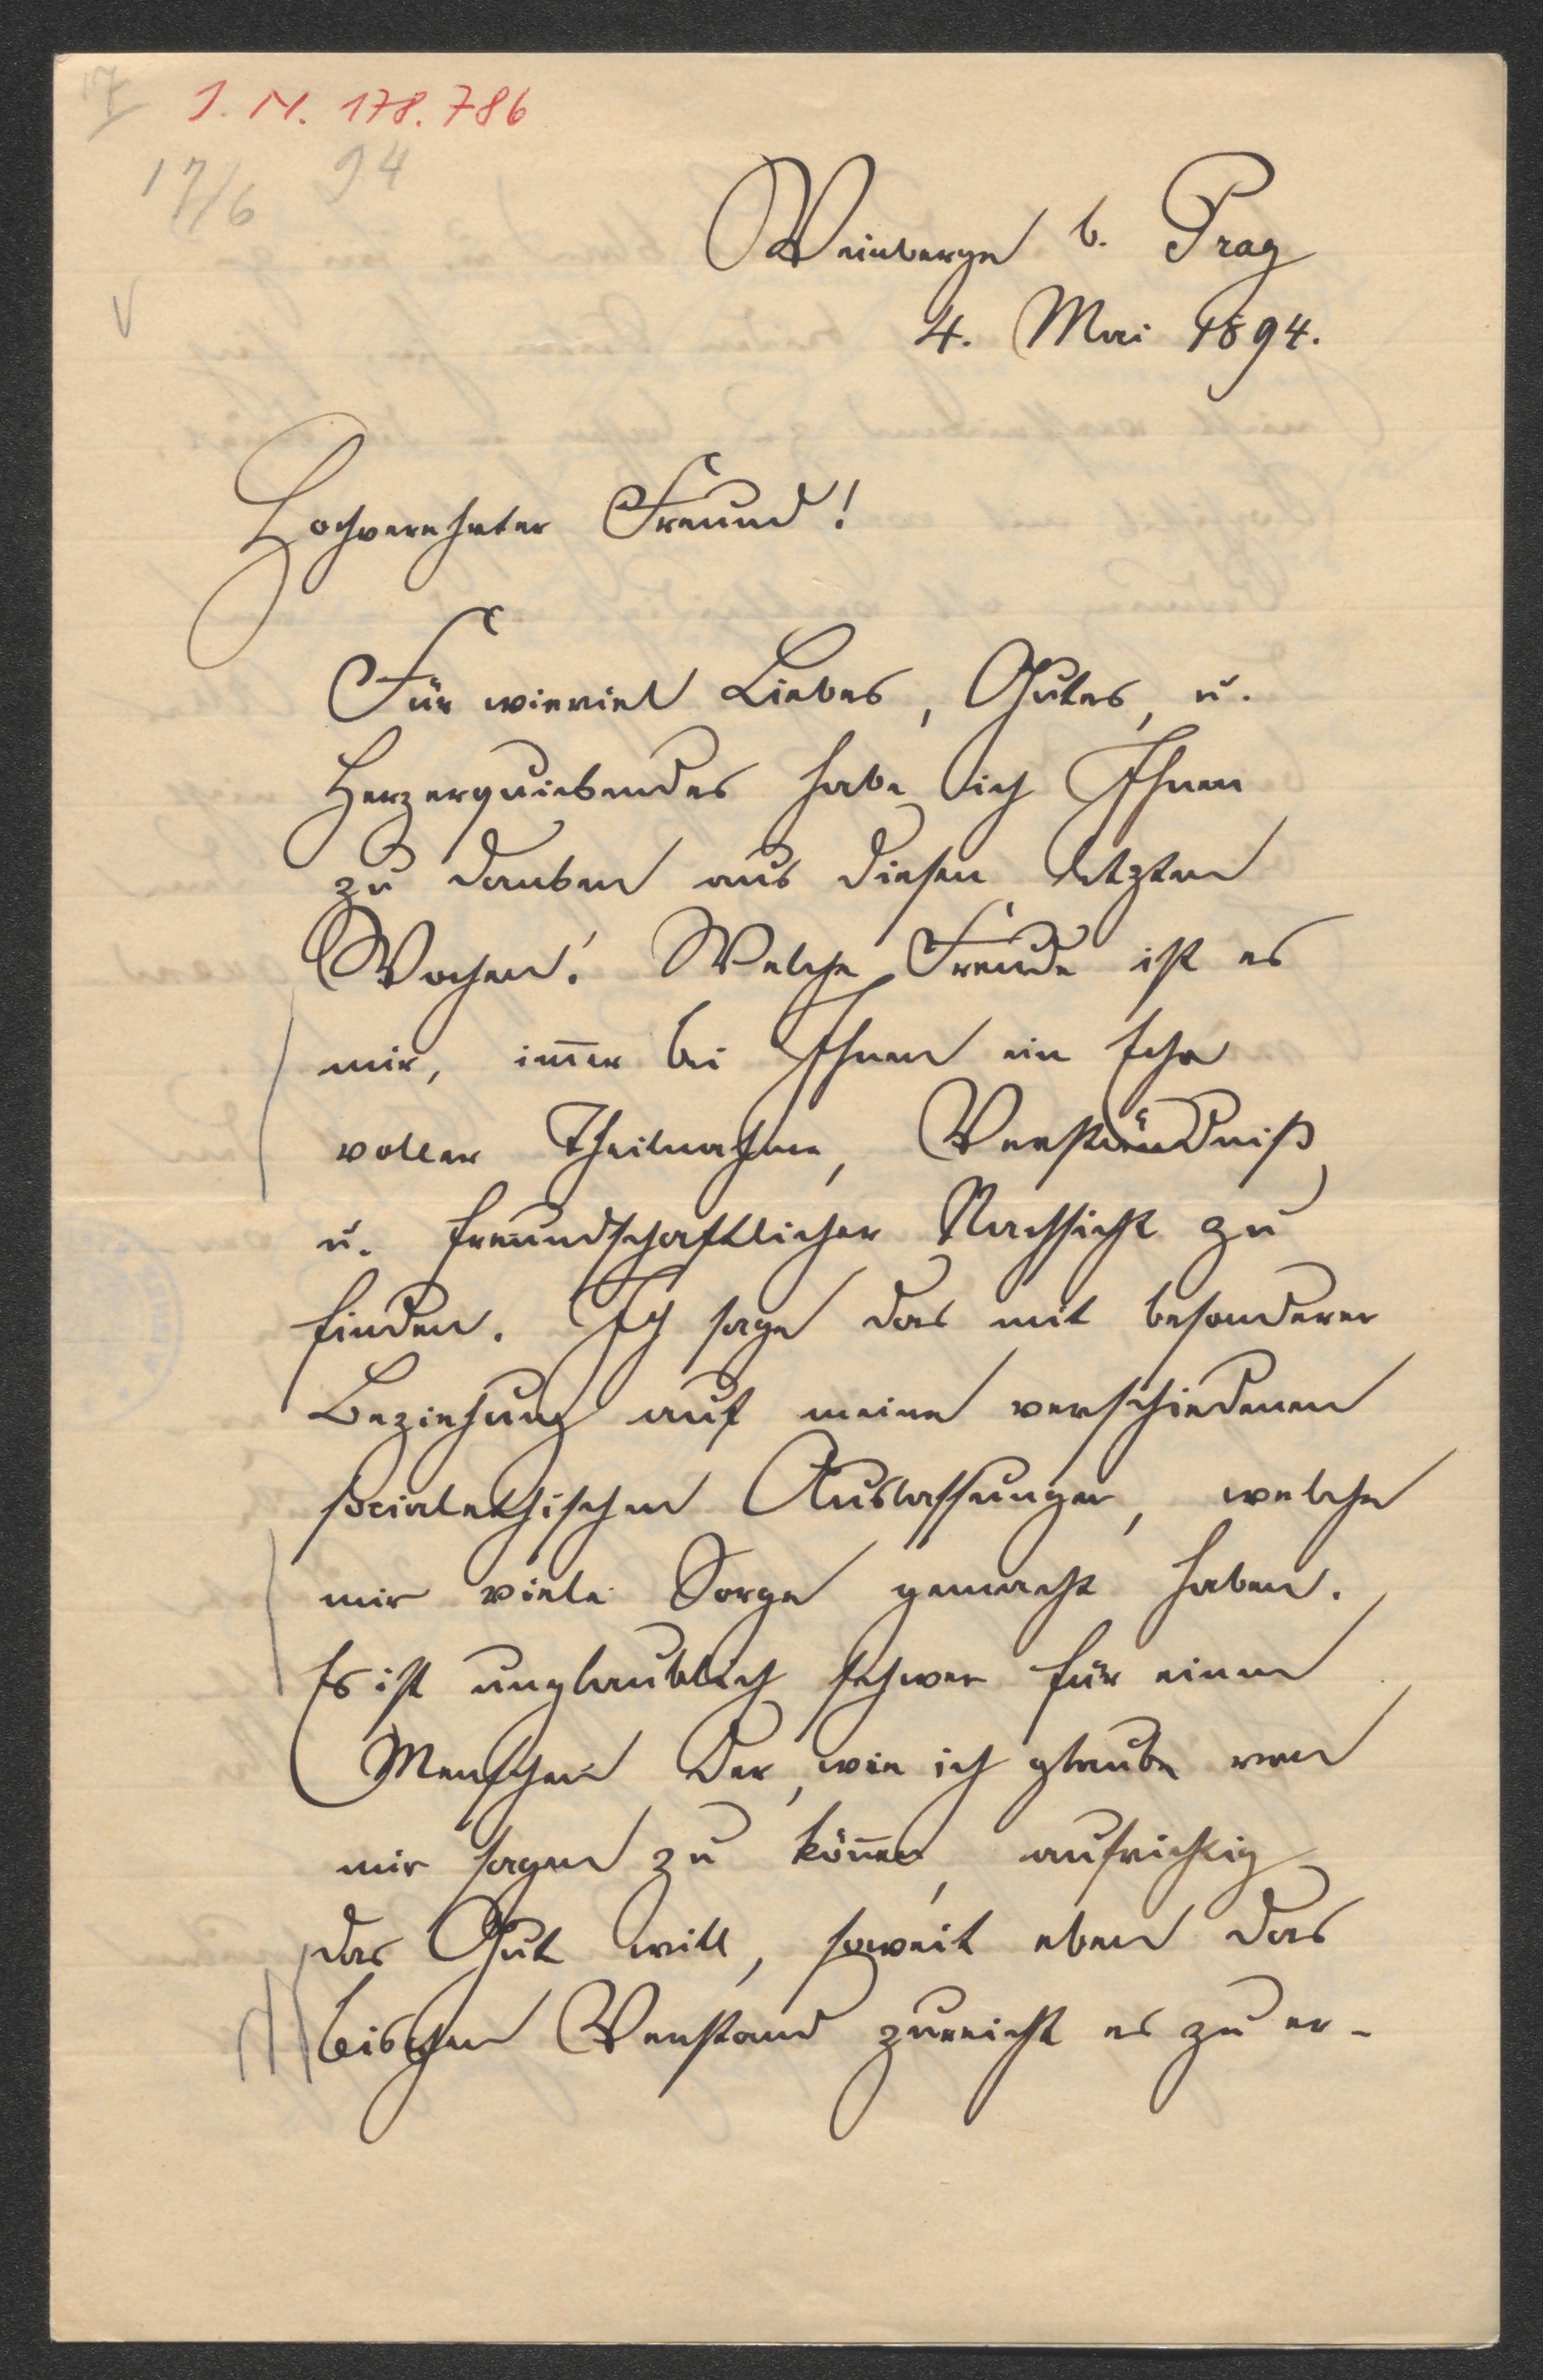 17
I. N. 178.786
17/6 94
Weinberge b. Prag
4. Mai 1894.
Hochverehrter Freund!
Für wieviel Liebes, Gutes, u.
Herzerquickendes habe ich Ihnen
zu danken aus diesen letzten
Wochen! Welche Freude ist es
mir, im̅er bei Ihnen ein Echo
voller Theilnahme, Verständniß,
u. freundschaftlicher Nachsicht zu
finden. Ich sage das mit besonderer
Beziehung auf meine verschiedenen
socialethischen Auslassungen, welche
mir viele Sorge gemacht haben.
Es ist unglaublich schwer für einen
Menschen der, wie ich glaube von
mir sagen zu kön̅en, aufrichtig
das Gute will, soweit eben das
bischen Verstand zureicht es zu er-